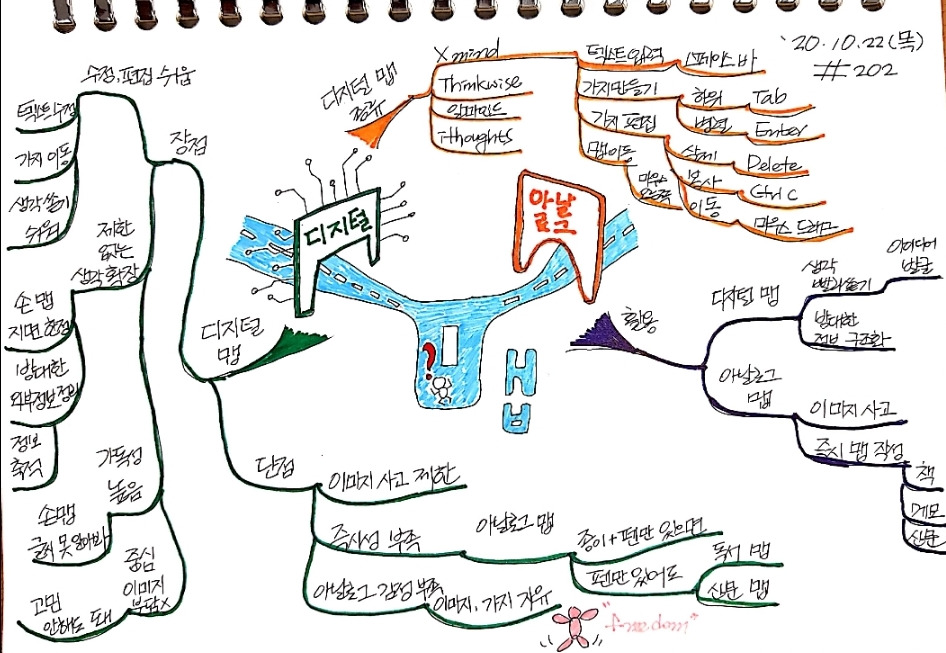 '20.10.22(목)
#202
디지털 맵
종류
Xmind
Thinkwise
알마인드
i-thoughts
텍스트 입력
스페이스 바
가지 만들기
하위
Tab
병렬
Enter
가지 편집
삭제
Delete
복사
Ctrl C
이동
마우스 드래그
맵 이동
마우스
오른쪽
디지털
아날
로그
맵
활용
디지털 맵
생각
빨리 쓸기
아이디어
발굴
방대한
정보 구조화
아날로그
맵
이미지 사고
즉시 맵 작성
책
메모
신문
디지털
맵
장점
수정, 편집 쉬움
텍스트 수정
가지 이동
생각 쓸기
쉬워
제한
없는
생각 확장
손 맵
지면 한정
방대한
외부정보 정리
정보
축적
가독성
높음
손맵
글씨 못 알아봐
중심
이미지
부담X
고민
안해도 돼
단점
이미지 사고 제한
즉시성 부족
아날로그 맵
종이+펜만 있으면
펜만 있어도
독서 맵
신문 맵
아날로그 감성 부족
이미지, 가지 자유
"freedom"